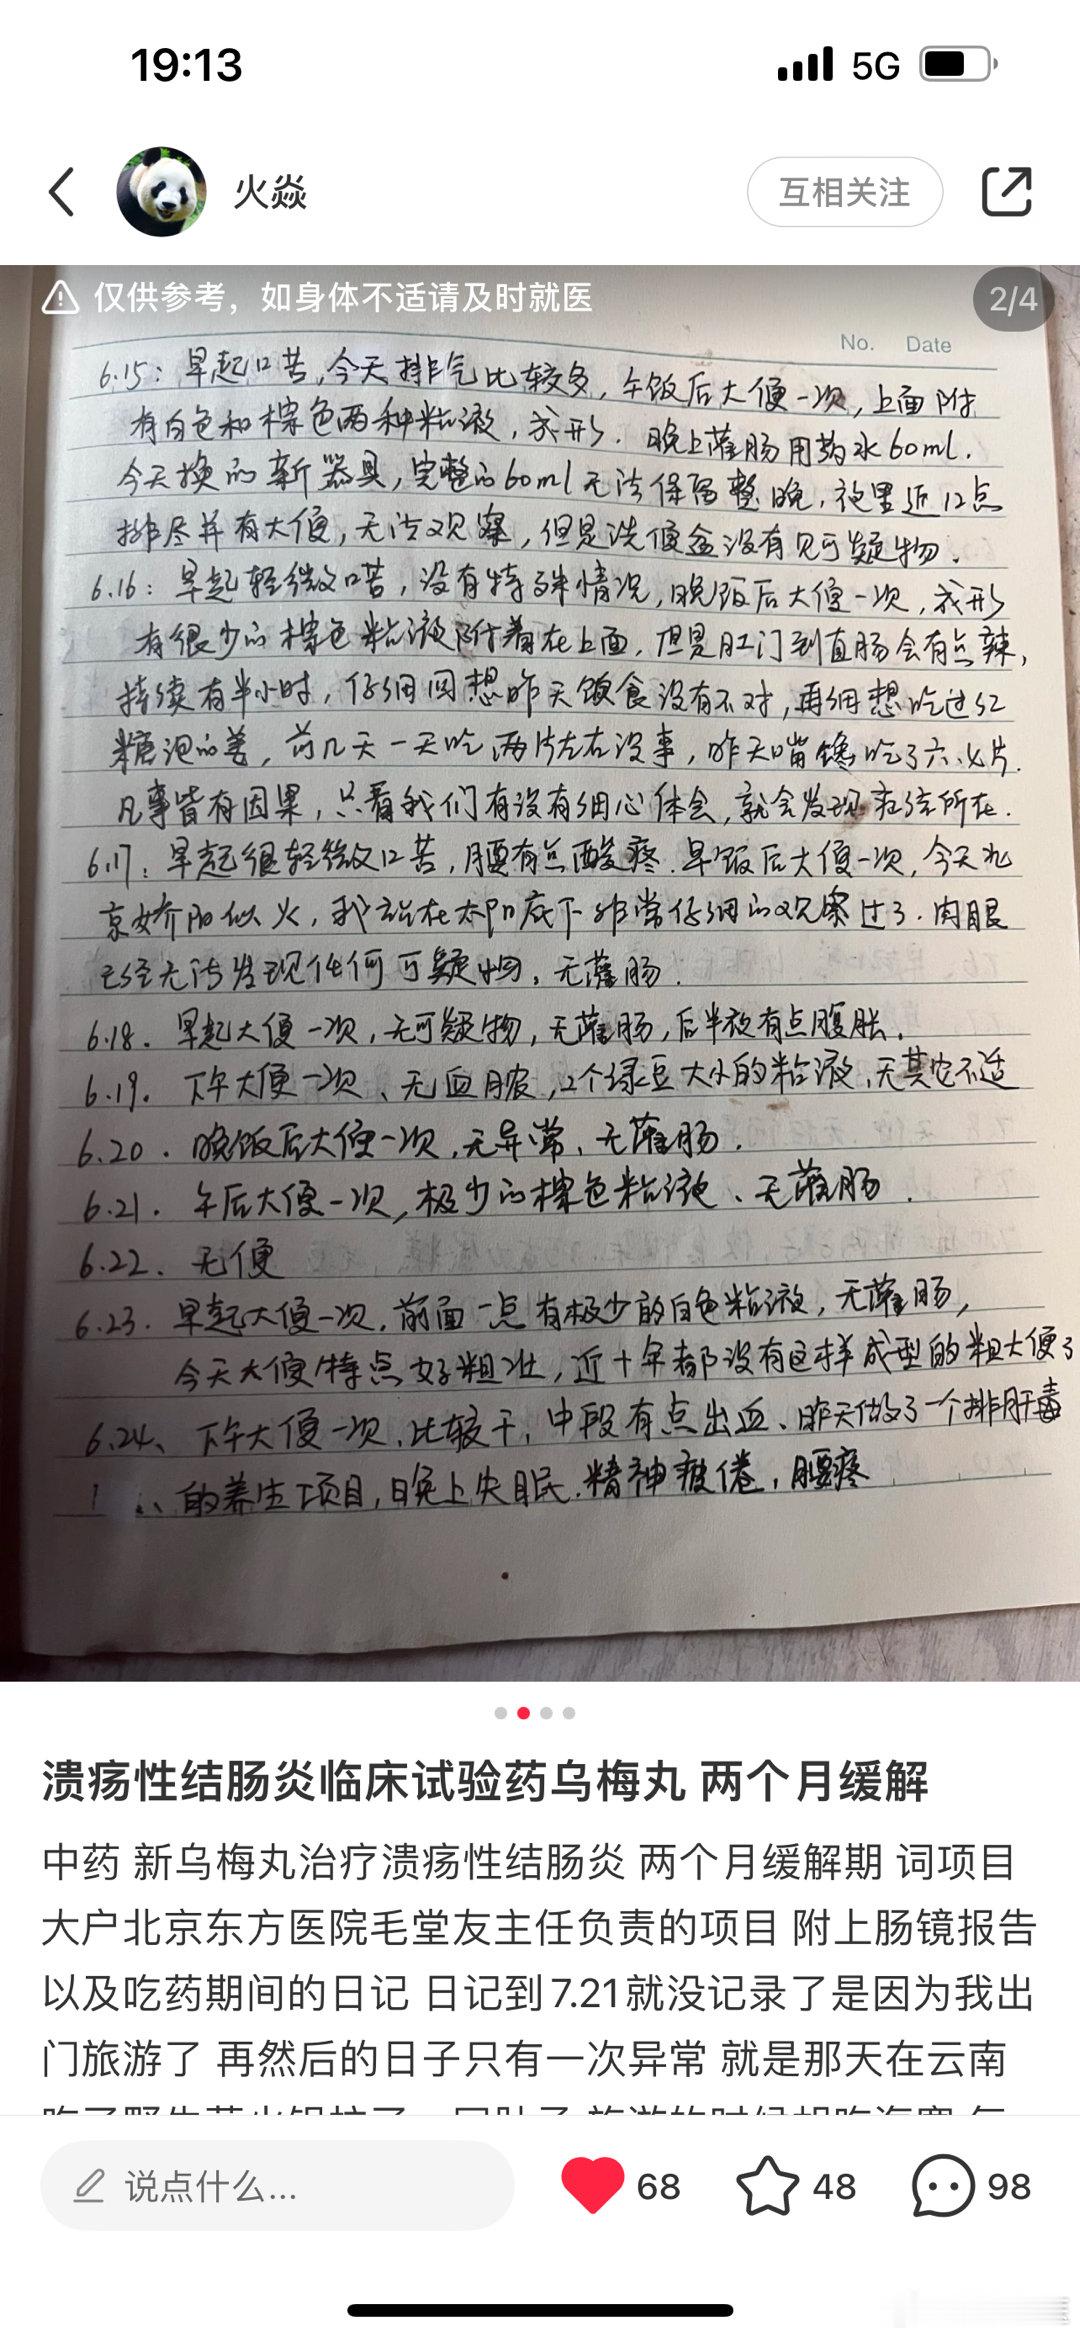 19:13
5G
火焱
互相关注
仅供参考，如身体不适请及时就医
2/4
No. Date
6.15：早起口苦，今天排气比较多，午饭后大便一次，上面附
有白色和棕色两种粘液，成形．晚上灌肠用药水60ml．
今天换的新器具，完整的60ml无法保留整晚，夜里近12点
排尽并有大便，无法观察，但是洗便盆没有见可疑物．
6.16：早起轻微口苦，没有特殊情况，晚饭后大便一次，成形
有很少的棕色粘液附着在上面，但是肛门到直肠会有点辣，
持续有半小时，仔细回想昨天饮食没有不对，再细想吃过红
糖泡的姜，前几天一天吃两片左右没事，昨天嘴馋吃了六．七片．
凡事皆有因果，只看我们有没有细心体会，就会发现症结所在．
6.17：早起很轻微口苦，腰有点酸疼．早饭后大便一次，今天北
京娇阳似火，我站在太阳底下非常仔细的观察过了．肉眼
已经无法发现任何可疑物，无灌肠．
6.18．早起大便一次，无可疑物，无灌肠，后半夜有点腹胀．
6.19．下午大便一次、无血脓，2个绿豆大小的粘液，无其它不适
6.20．晚饭后大便一次，无异常、无灌肠．
6.21．午后大便一次，极少的棕色粘液、无灌肠．
6.22．无便
6.23．早起大便一次．前面一点有极少的白色粘液，无灌肠，
今天大便特点好粗壮，近十年都没有这样成型的粗大便了
6.24、下午大便一次．比较干，中段有点出血、昨天做了一个排肝毒
的养生项目，晚上失眠．精神疲倦，腰疼
溃疡性结肠炎临床试验药乌梅丸 两个月缓解
中药 新乌梅丸治疗溃疡性结肠炎 两个月缓解期 词项目
大户北京东方医院毛堂友主任负责的项目 附上肠镜报告
以及吃药期间的日记 日记到7.21就没记录了是因为我出
门旅游了 再然后的日子只有一次异常 就是那天在云南
说点什么...
68
48
98